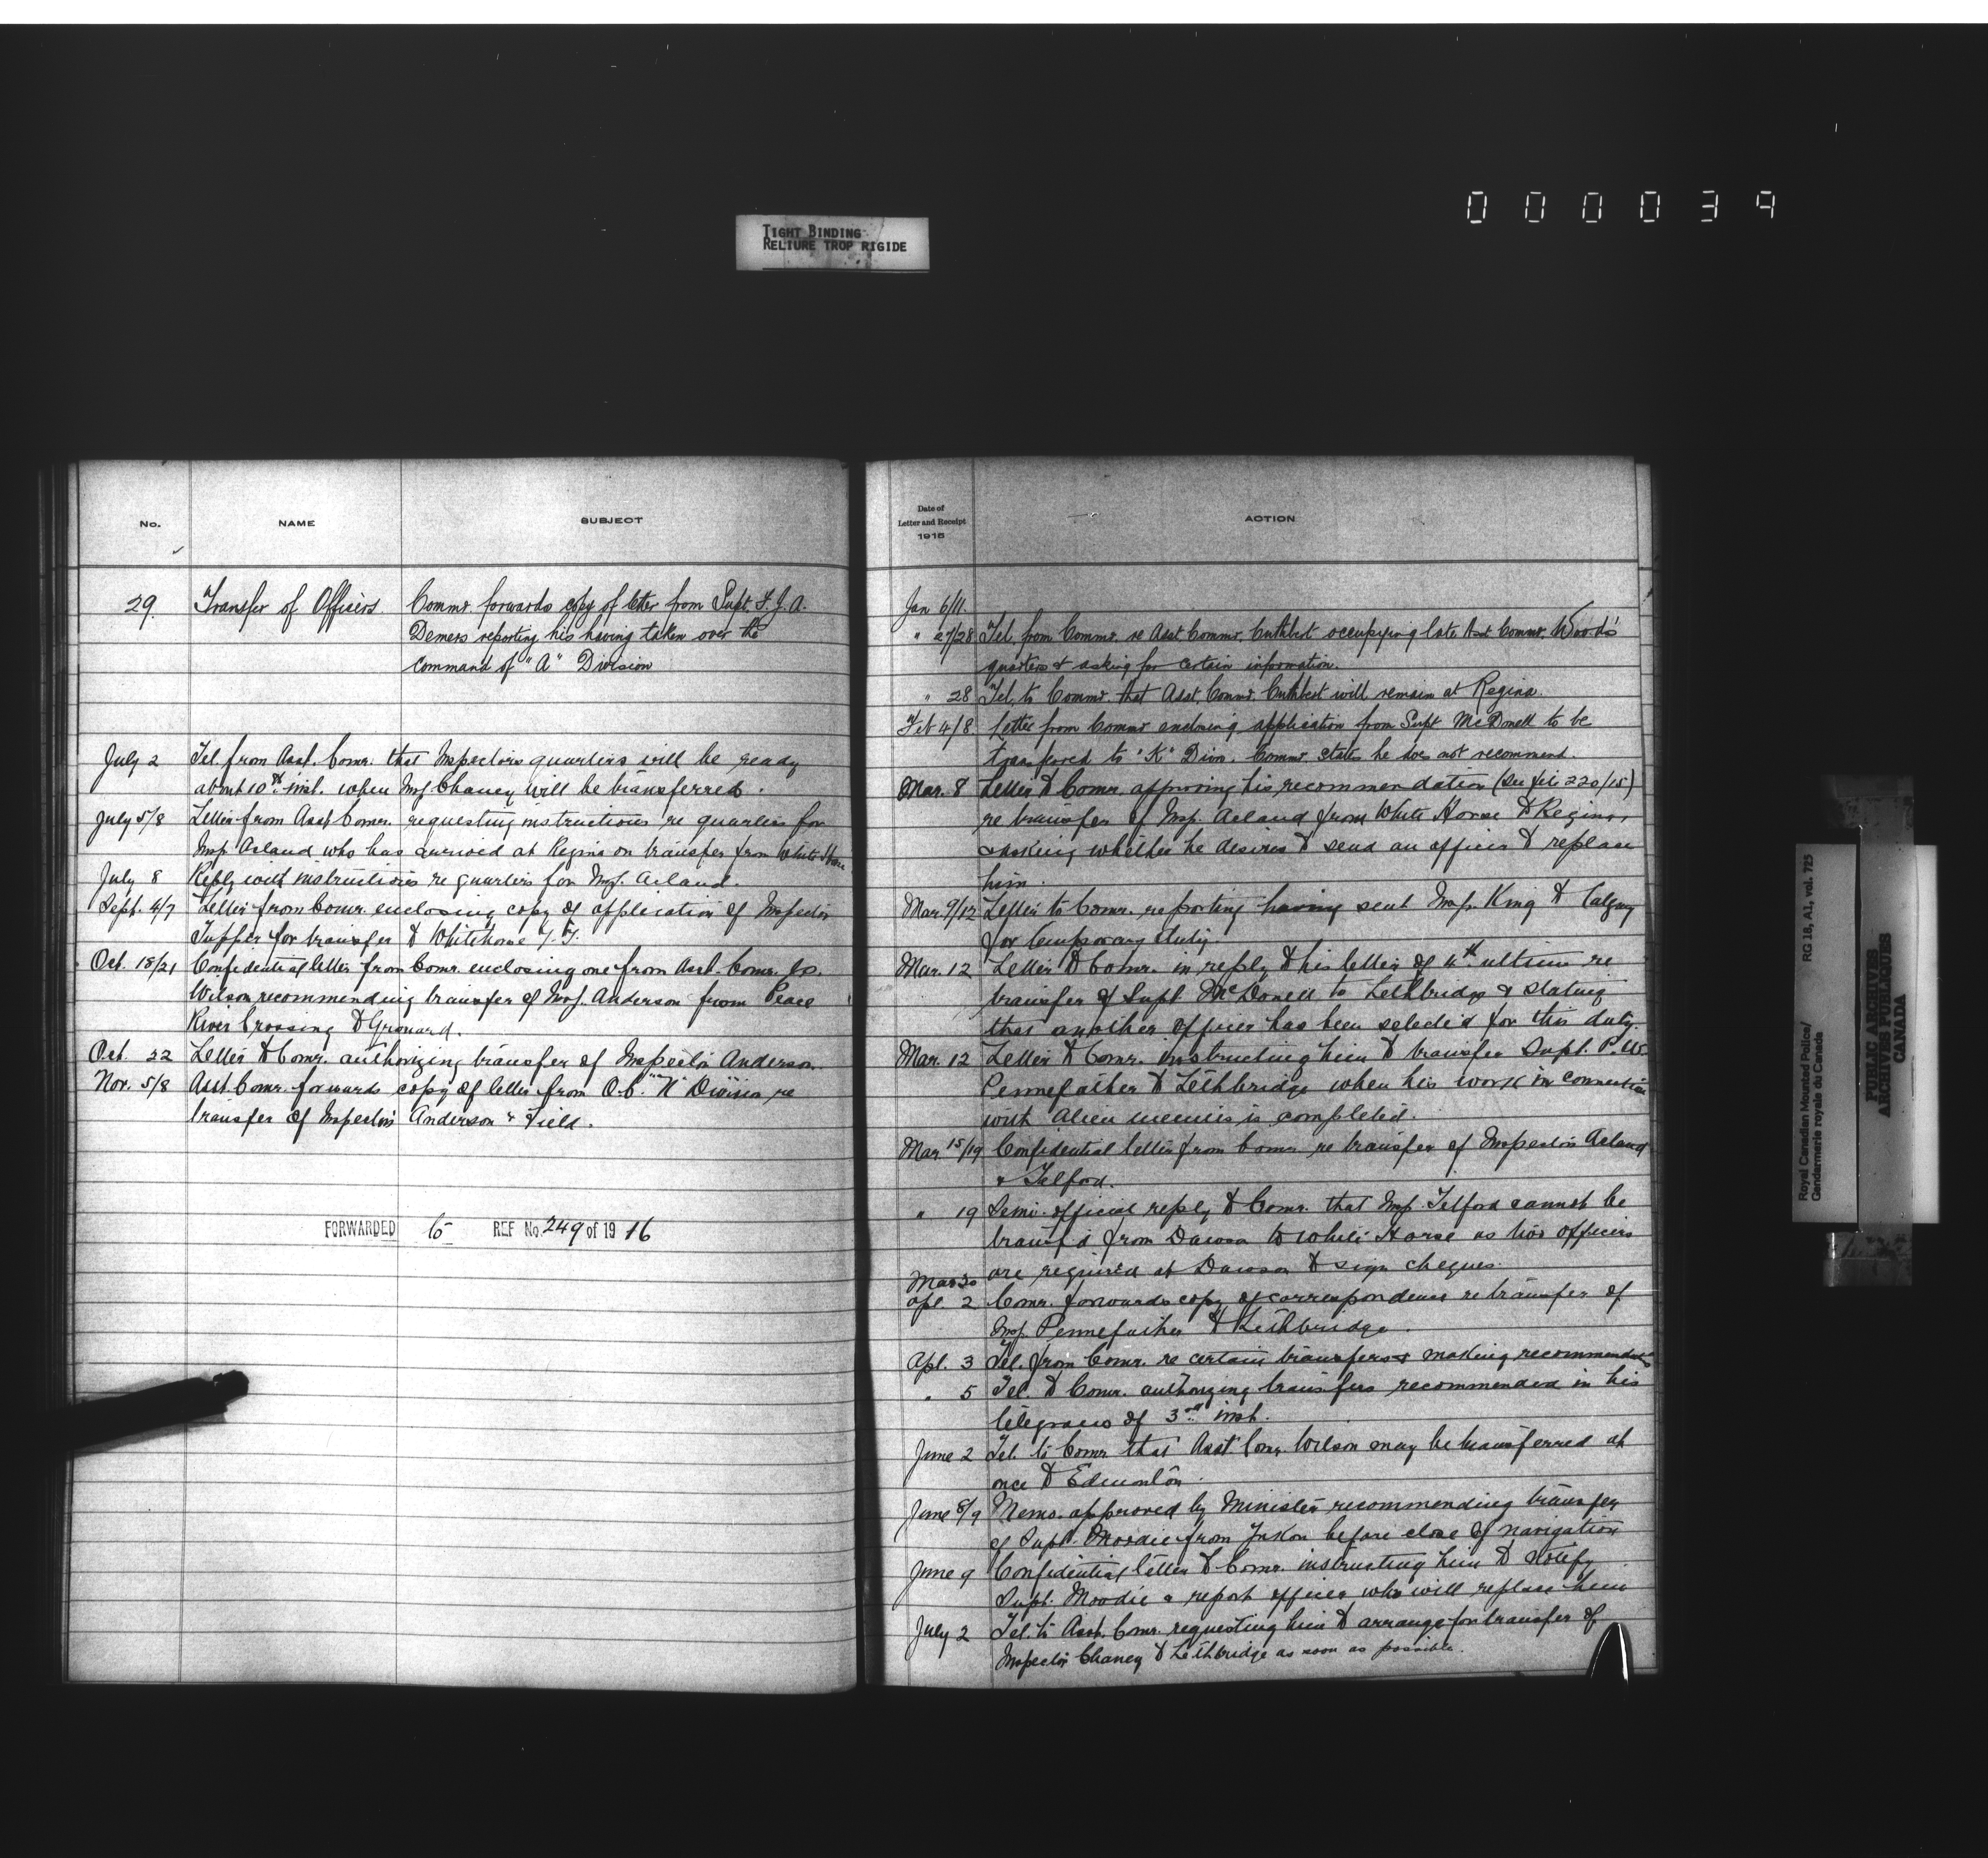 000039
TIGHT BINDING
RELIURE TROP RIGIDE
No.
NAME
SUBJECT
29. Transfer of Officers. Commr. forwards copy of letter from Supt. F. J. A.
Demers reporting his having taken over the
command of "A" Division
July 2 Tel. from Asst. Comr. that Inspectors quarters will be ready
about 10th inst. when Insp Chaney will be transferred.
July 5/8 Letter from Asst Comr. requesting instructions re quarters for
Insp Acland who has arrived at Regina on transfer from White Horse
July 8 Reply with instructions re quarters for Insp. Acland.
Sept. 4/7 Letter from Comr. enclosing copy of application of Inspector
Tupper for transfer to Whitehorse Y.T.
Oct. 18/21 Confidential letter from Comr. enclosing one from Asst. Comr.
Wilson recommending transfer of Insp. Anderson from Peace
River Crossing to Grouard.
Oct. 22 Letter to Comr. authorizing transfer of Inspector Anderson.
Nov. 5/8 Asst Comr. forwards copy of letter from O.C. "N" Division re
transfer of Inspectors Anderson & Field.
FORWARDED to REF No. 249 of 1916
Date of
Letter and Receipt
1915
ACTION
Jan 6/11.
" 27/28 Tel. from Commr. re Asst. Commr. Cuthbert occupying late Asst Commr. Wood's
quarters & asking for certain information.
" 28 Tel. to Commr. that Asst. Commr. Cuthbert will remain at Regina.
Feb 4/8 Letter from Commr enclosing application from Supt McDonell to be
transfered to "K" Divn. Commr. states he does not recommend.
Mar. 8 Letter to Comr. approving his recommendation (See file 220/15)
re transfer of Insp. Acland from White Horse to Regina,
& asking whether he desires to send an officer to replace
him.
Mar. 9/12 Letter to Comr. reporting having sent Insp. King to Calgary
for temporary duty.
Mar. 12 Letter to Comr. in reply to his letter of 4th ultimo re
transfer of Supt. McDonell to Lethbridge & stating
that another officer has been selected for this duty.
Mar. 12 Letter to Comr. instructing him to transfer Supt. P. W.
Pennefather to Lethbridge when his work in connection
with Alien enemies is completed.
Mar 15/19 Confidential letter from Comr re transfer of Inspectors Acland
& Telford.
" 19 Semi-official reply to Comr. that Insp. Telford cannot be
transf'd from Dawson to White Horse as two officers
are required at Dawson to sign cheques.
Mar 30
Apl. 2 Comr. forwards copy of correspondence re transfer of
Insp. Pennefather to Lethbridge.
Apl. 3 Tel. from Comr. re certain transfers & making recommendations
" 5 Tel. to Comr. authorizing transfers recommended in his
telegram of 3rd inst.
June 2 Tel. to Comr that Asst Comr. Wilson may be transferred at
once to Edmonton.
June 8/9 Memo. approved by Minister recommending transfer
of Supt. Moodie from Yukon before close of navigation
June 9 Confidential letter to Comr. instructing him to notify
Supt. Moodie & report officer who will replace him
July 2 Tel. to Asst. Comr. requesting him to arrange for transfer of
Inspector Chaney to Lethbridge as soon as possible.
Royal Canadian Mounted Police/
Gendarmerie royale du Canada
RG 18, A1, vol. 725
PUBLIC ARCHIVES
ARCHIVES PUBLIQUES
CANADA